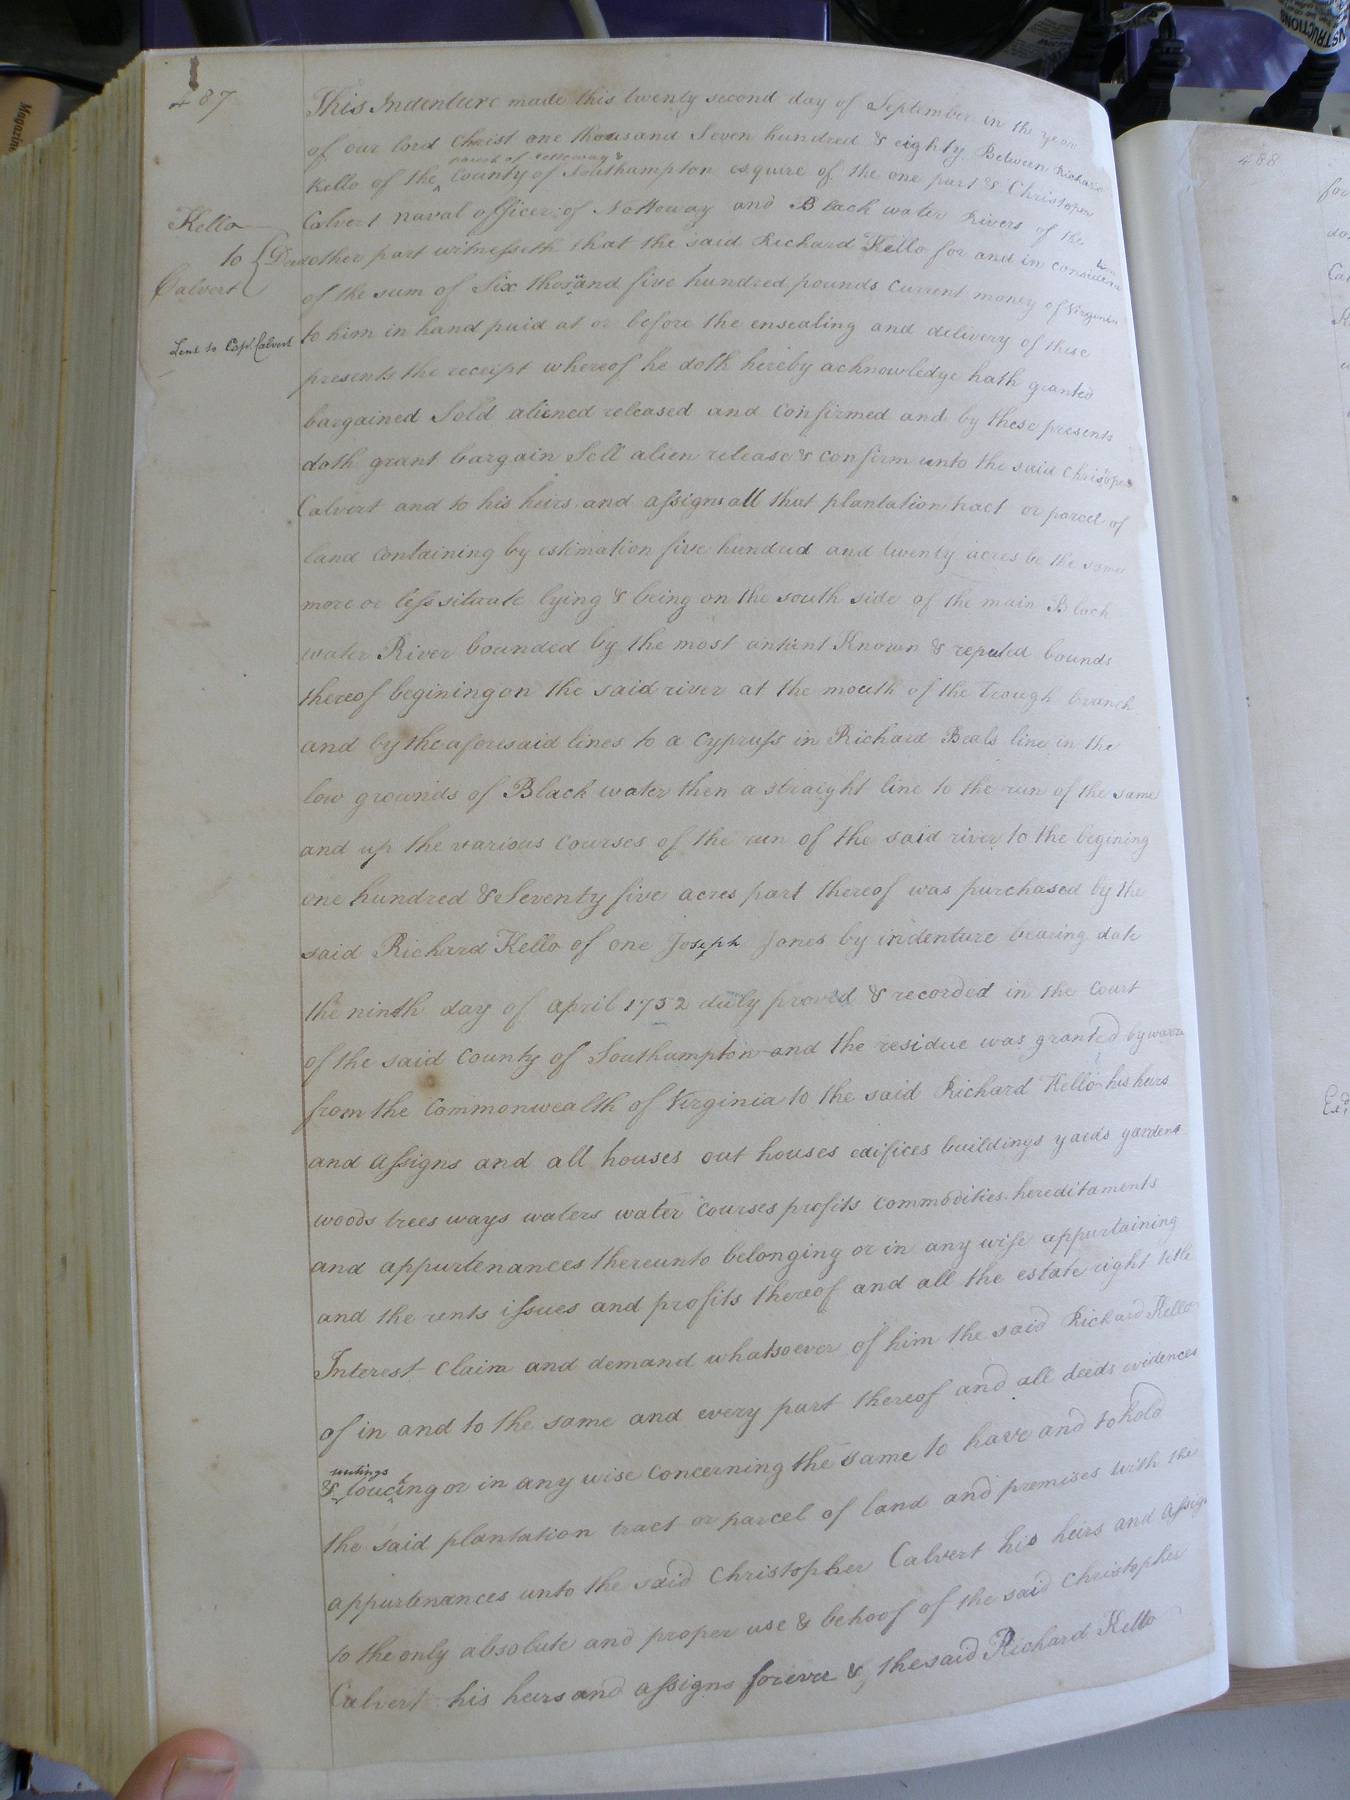 487
This Indenture made this twenty second day of September in the year
of our lord Christ one thousand Seven hundred & eighty Between Richard
parish of Nottoway &
Kello of the County of Southampton esquire of the one part & Christopher
Calvert naval officer of Nottoway and Black water Rivers of the
Kello
to
Calvert
Deed
other part witnesseth that the said Richard Kello for and in consideration
of the sum of Six thousand five hundred pounds Current money of Virginia
Sent to Capt. Calvert
to him in hand paid at or before the ensealing and delivery of these
presents the receipt whereof he doth hereby acknowledge hath granted
bargained Sold aliened released and Confirmed and by these presents
doth grant bargain Sell alien release & confirm unto the said Christopher
Calvert and to his heirs and assigns all that plantation tract or parcel of
land Containing by estimation five hundred and twenty acres be the same
more or less situate lying & being on the south side of the main Black
water River bounded by the most antient Known & reputed bounds
thereof begining on the said river at the mouth of the trough branch
and by the aforesaid lines to a Cypruss in Richard Beals line in the
low grownds of Black water then a straight line to the run of the same
and up the various Courses of the run of the said river to the begining
one hundred & Seventy five acres part thereof was purchased by the
said Richard Kello of one Joseph Jones by indenture bearing date
the ninth day of april 1752 duly proved & recorded in the Court
of the said County of Southampton and the residue was granted by
from the Commonwealth of Virginia to the said Richard Kello his heirs
and Assigns and all houses out houses edifices buildings yards gardens
woods trees ways waters water Courses profits Commodities hereditaments
and appurtenances thereunto belonging or in any wise appurtaining
and the rents issues and profits thereof and all the estate right title
Interest Claim and demand whatsoever of him the said Richard Kello
of in and to the same and every part thereof and all deeds evidences
writings
& touching or in any wise Concerning the same to have and to hold
the said plantation tract or parcel of land and premises with the
appurtenances unto the said Christopher Calvert his heirs and Assigns
to the only absolute and proper use & behoof of the said Christopher
Calvert his heirs and assigns forever & the said Richard Kello
488